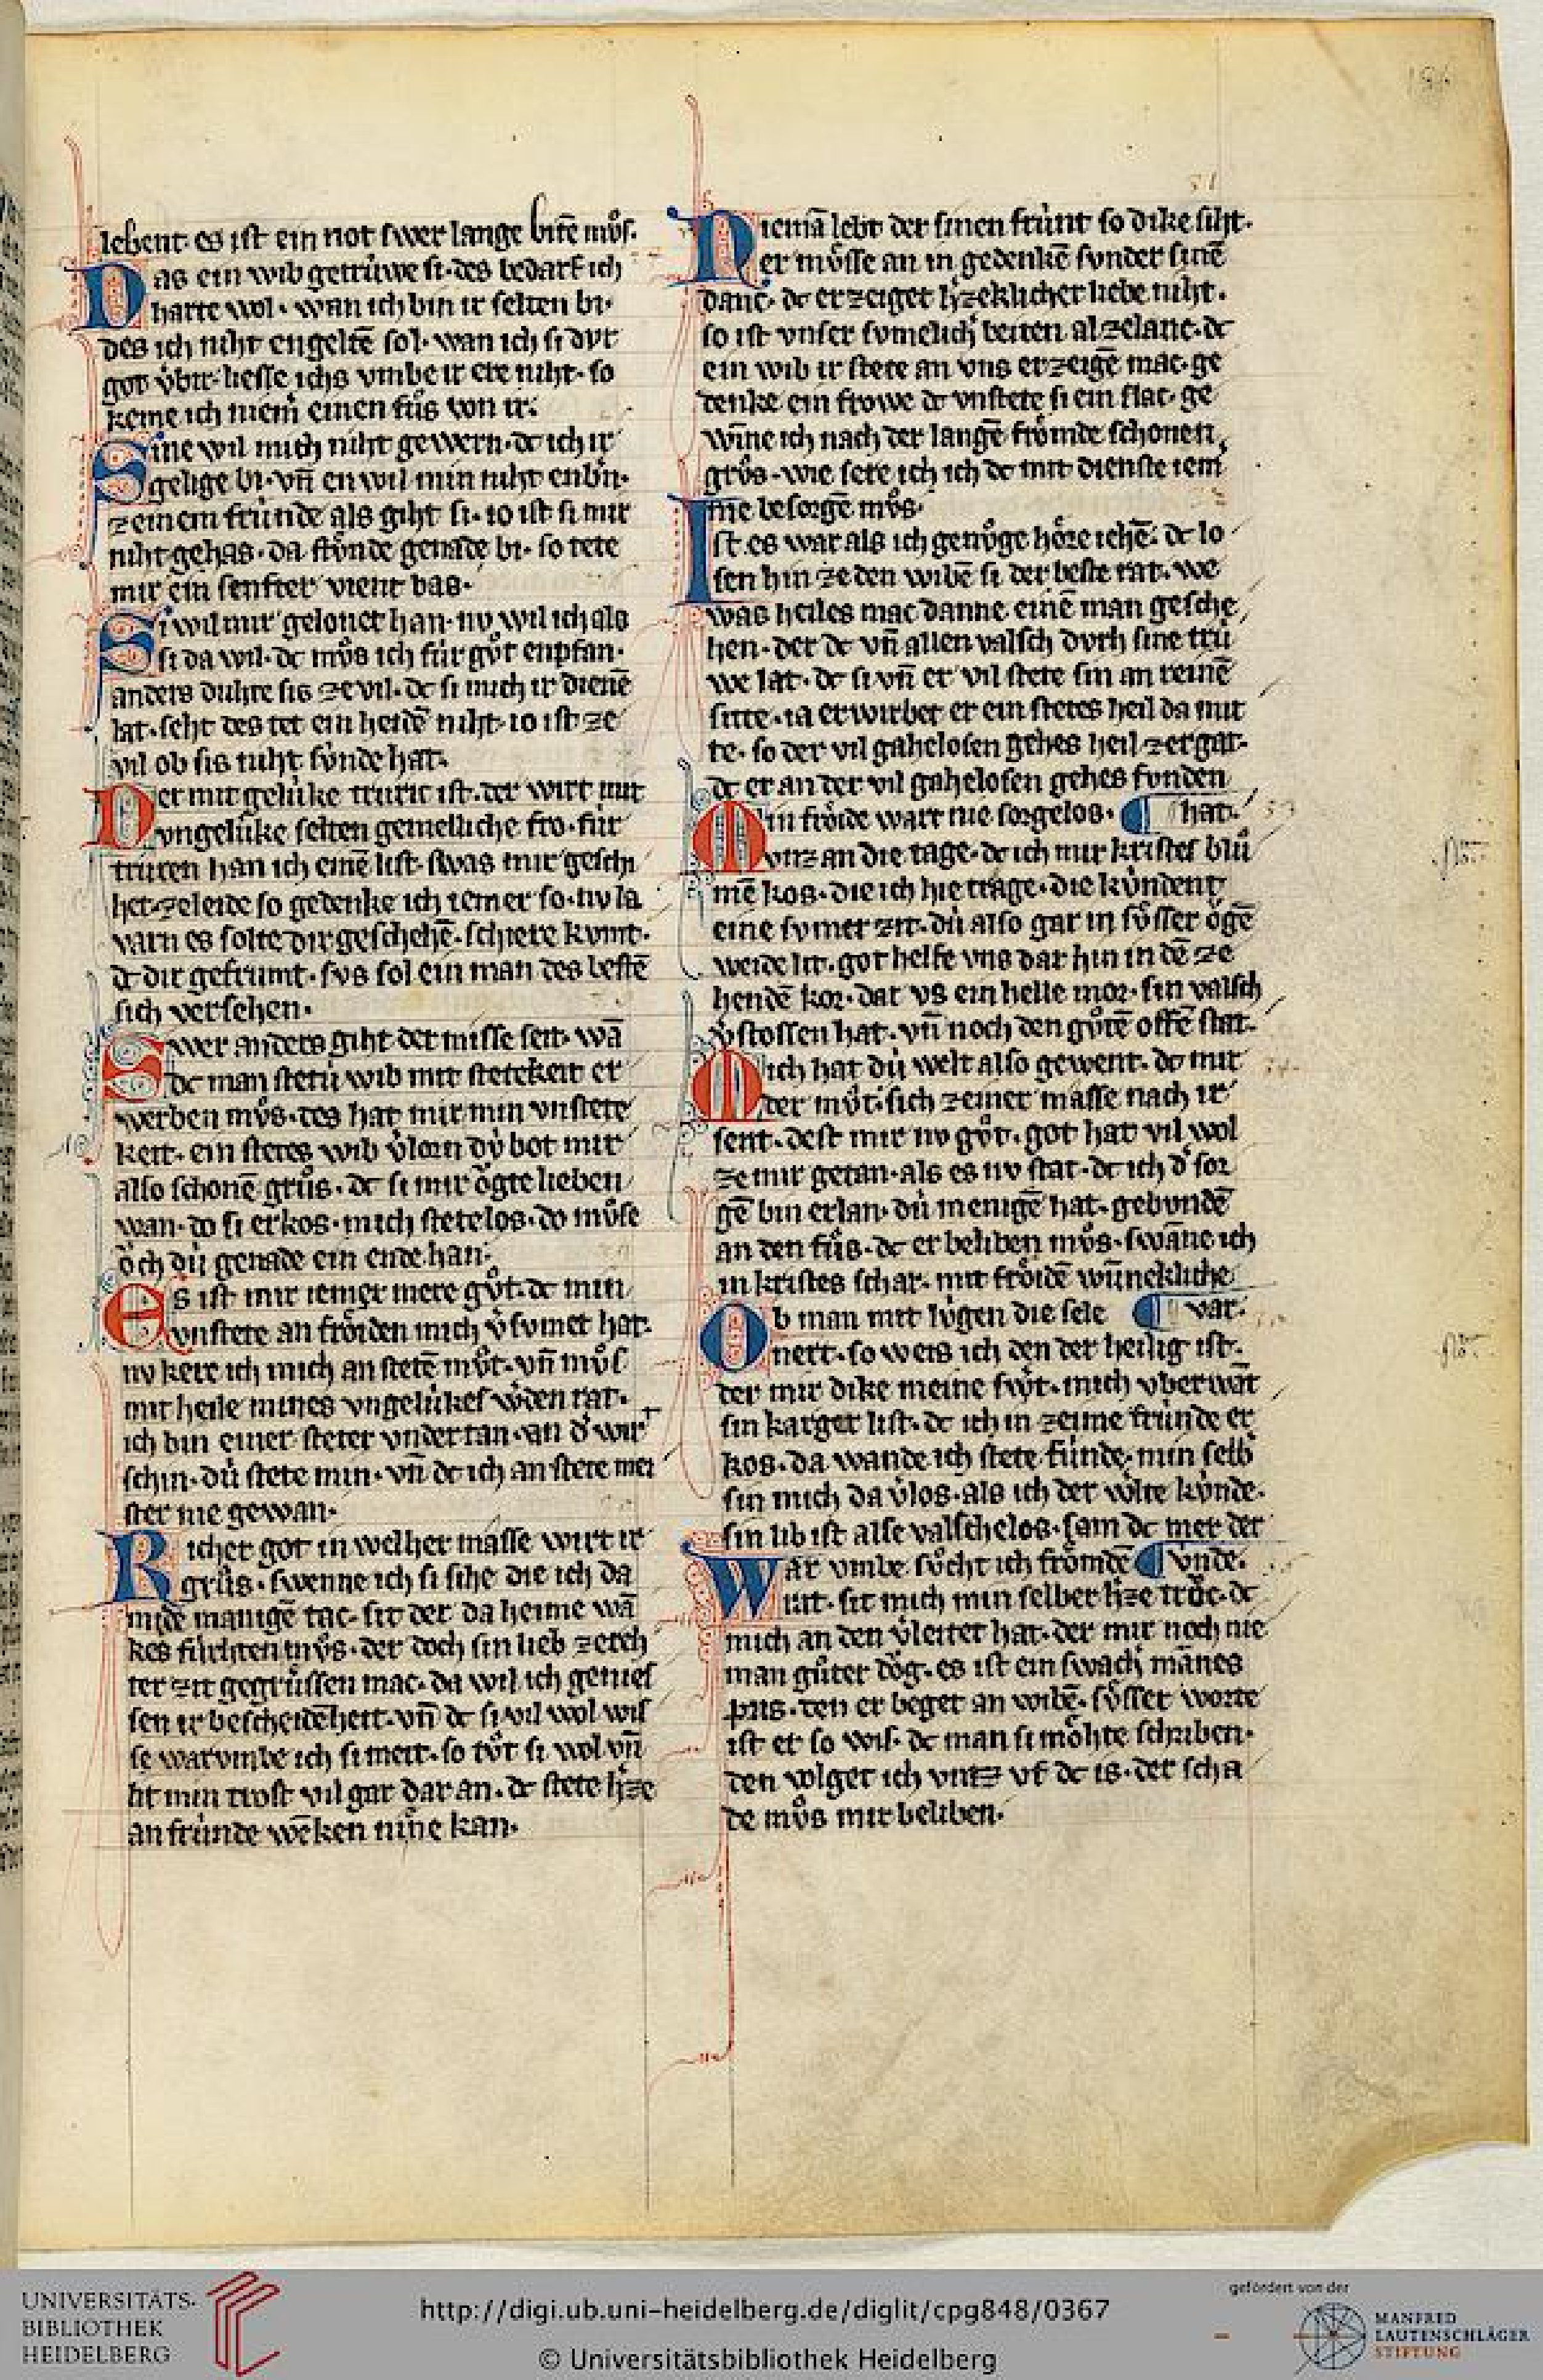 lebent. es ist ein not swer lange bitē můs.
Das ein wib getrúwe si. des bedarf ich
harte wol. wan ich bin ir selten bi.
des ich niht engeltē sol. wan ich si dur
got v̾bir. liesse ichs vmbe ir ere niht. so
keme ich niem̄ einen fůs von ir.
Sine wil mich niht gewern. dc ich ir
gelige bi. vn̄ en wil min niht enb̾n.
zeinem frúnde als giht si. io ist si mir
niht gehas. da stv̊nde genade bi. so tete
mir ein senfter vient bas.
Si wil mir gelonet han. nv wil ich als
si da wil. dc mv̊s ich fúr gv̊t enpfan.
anders duhte sis ze vil. dc si mich ir dienē
lat. seht des tet ein heidē niht. io ist ze
vil ob sis niht súnde hat.
Der mit gelúke truric ist. der wirt mit
vngelúke selten gemelliche fro. fúr
truren han ich einē list. swas mir geschi
het zeleide so gedenke ich iemer so. nv la
varn es solte dir geschehē. schiere kvmt.
dc dir gefrumt. svs sol ein man des bestē
sich versehen.
Swer anders giht der misse seit. wā
dc man stetú wib mit stetekeit er
werben mv̊s. des hat mir min vnstete
keit. ein stetes wib v̾lorn dú bot mir
also schonē grůs. dc si mir ögte lieben
wan. do si erkos. mich stetelos. do mv̊se
öch dú genade ein ende han.
Es ist mir iemer mere gv̊t. dc min
vnstete an fröiden mich v̾svmet hat.
nv kere ich mich an stetē mv̊t. vn̄ mv̊s
mit heile mines vngelúkes w̾den rat.
ich bin einer steter vndertan. an d̾ wirt
schin. dú stete min. vn̄ dc ich an stete mei
ster nie gewan.
Richer got in welher masse wirt ir
grůs. swenne ich si sihe die ich da
mide manigē tac. sit der da heime wā
kes fúrhten mv̊s. der doch sin lieb zerech
ter zit gegrůssen mac. da wil ich genies
sen ir bescheidēheit. vn̄ dc si vil wol wis
se warvmbe ich si meit. so tv̊t si wol vn̄
lit min trost vil gar dar an. dc stete h̾ze
an frúnde wēken nih̄e kan.
Niemā lebt der sinen frúnt so dike siht.
er mv̊sse an in gedenkē svnder sinē
danc. dc er zeiget h̾zeklicher liebe niht.
so ist vnser svmelich̾ beiten al zelanc. dc
ein wib ir stete an vns erzeigē mac. ge
denke ein frowe dc vnstete si ein slac. ge
wine ich nach der langē frömde schonen
grůs. wie sere ich ich dc mit dienste iem̄
me besorgē mv̊s.
Ist es war als ich genv̊ge höre iehē. dc lo
sen hin ze den wibē si der beste rat. we
was heiles mac danne einē man gesche
hen. der dc vn̄ allen valsch dvrh sine trú
we lat. dc si vn̄ er vil stete sin an reinē
sitte. ia erwirbet er ein stetes heil da mit
te. so der vil gahelosen gehes heil zergat.
dc er an der vil gahelosen gehes fvnden
Min fröide wart nie sorgelos. ¶ hat.
vnz an die tage. dc ich mir kristes blů
mē kos. die ich hie trage. die kúndent
eine svmer zit. dú also gar in sv̊sser ögē
weide lit. got helfe vns dar hin in dē ze
hendē kor. dar vs ein helle mor. sin valsch
v̾stossen hat. vn̄ noch den gv̊tē offē stat.
Mich hat dú welt also gewent. dc mir
der mv̊t. sich zeiner masse nach ir
sent. dest mir nv gv̊t. got hat vil wol
ze mir getan. als es nv stat. dc ich d̾ sor
gē bin erlan. dú menigē hat. gebvndē
an den fůs. dc er beliben mv̊s. swāne ich
in kristes schar. mit fröidē wúnekliche
Ob man mit lúgen die sele ¶ var.
nert. so weis ich den der heilig ist.
der mir dike meine swv̊r. mich vberwāt
sin karger list. dc ich in zeime frúnde er
kos. da wande ich stete fúnde. min selb
sin mich da v̾los. als ich der w̾lte kúnde.
sin lib ist alse valschelos. sam dc mer der
War vmbe sv̊cht ich frömdē ¶ vnde.
rat. sit mich min selber h̾ze trög. dc
mich an den v̾leitet hat. der mir noch nie
man gůter tög. es ist ein swach̾ mānes
pris. den er beget an wibē. sv̊sser worte
ist er so wis. dc man si möhte schriben.
den volget ich vntz vf dc is. der scha
de mv̊s mir beliben.
UNIVERSITÄTS-
BIBLIOTHEK
HEIDELBERG
http://digi.ub.uni-heidelberg.de/diglit/cpg848/0367
© Universitätsbibliothek Heidelberg
gefördert von der
MANFRED
LAUTENSCHLÄGER
STIFTUNG